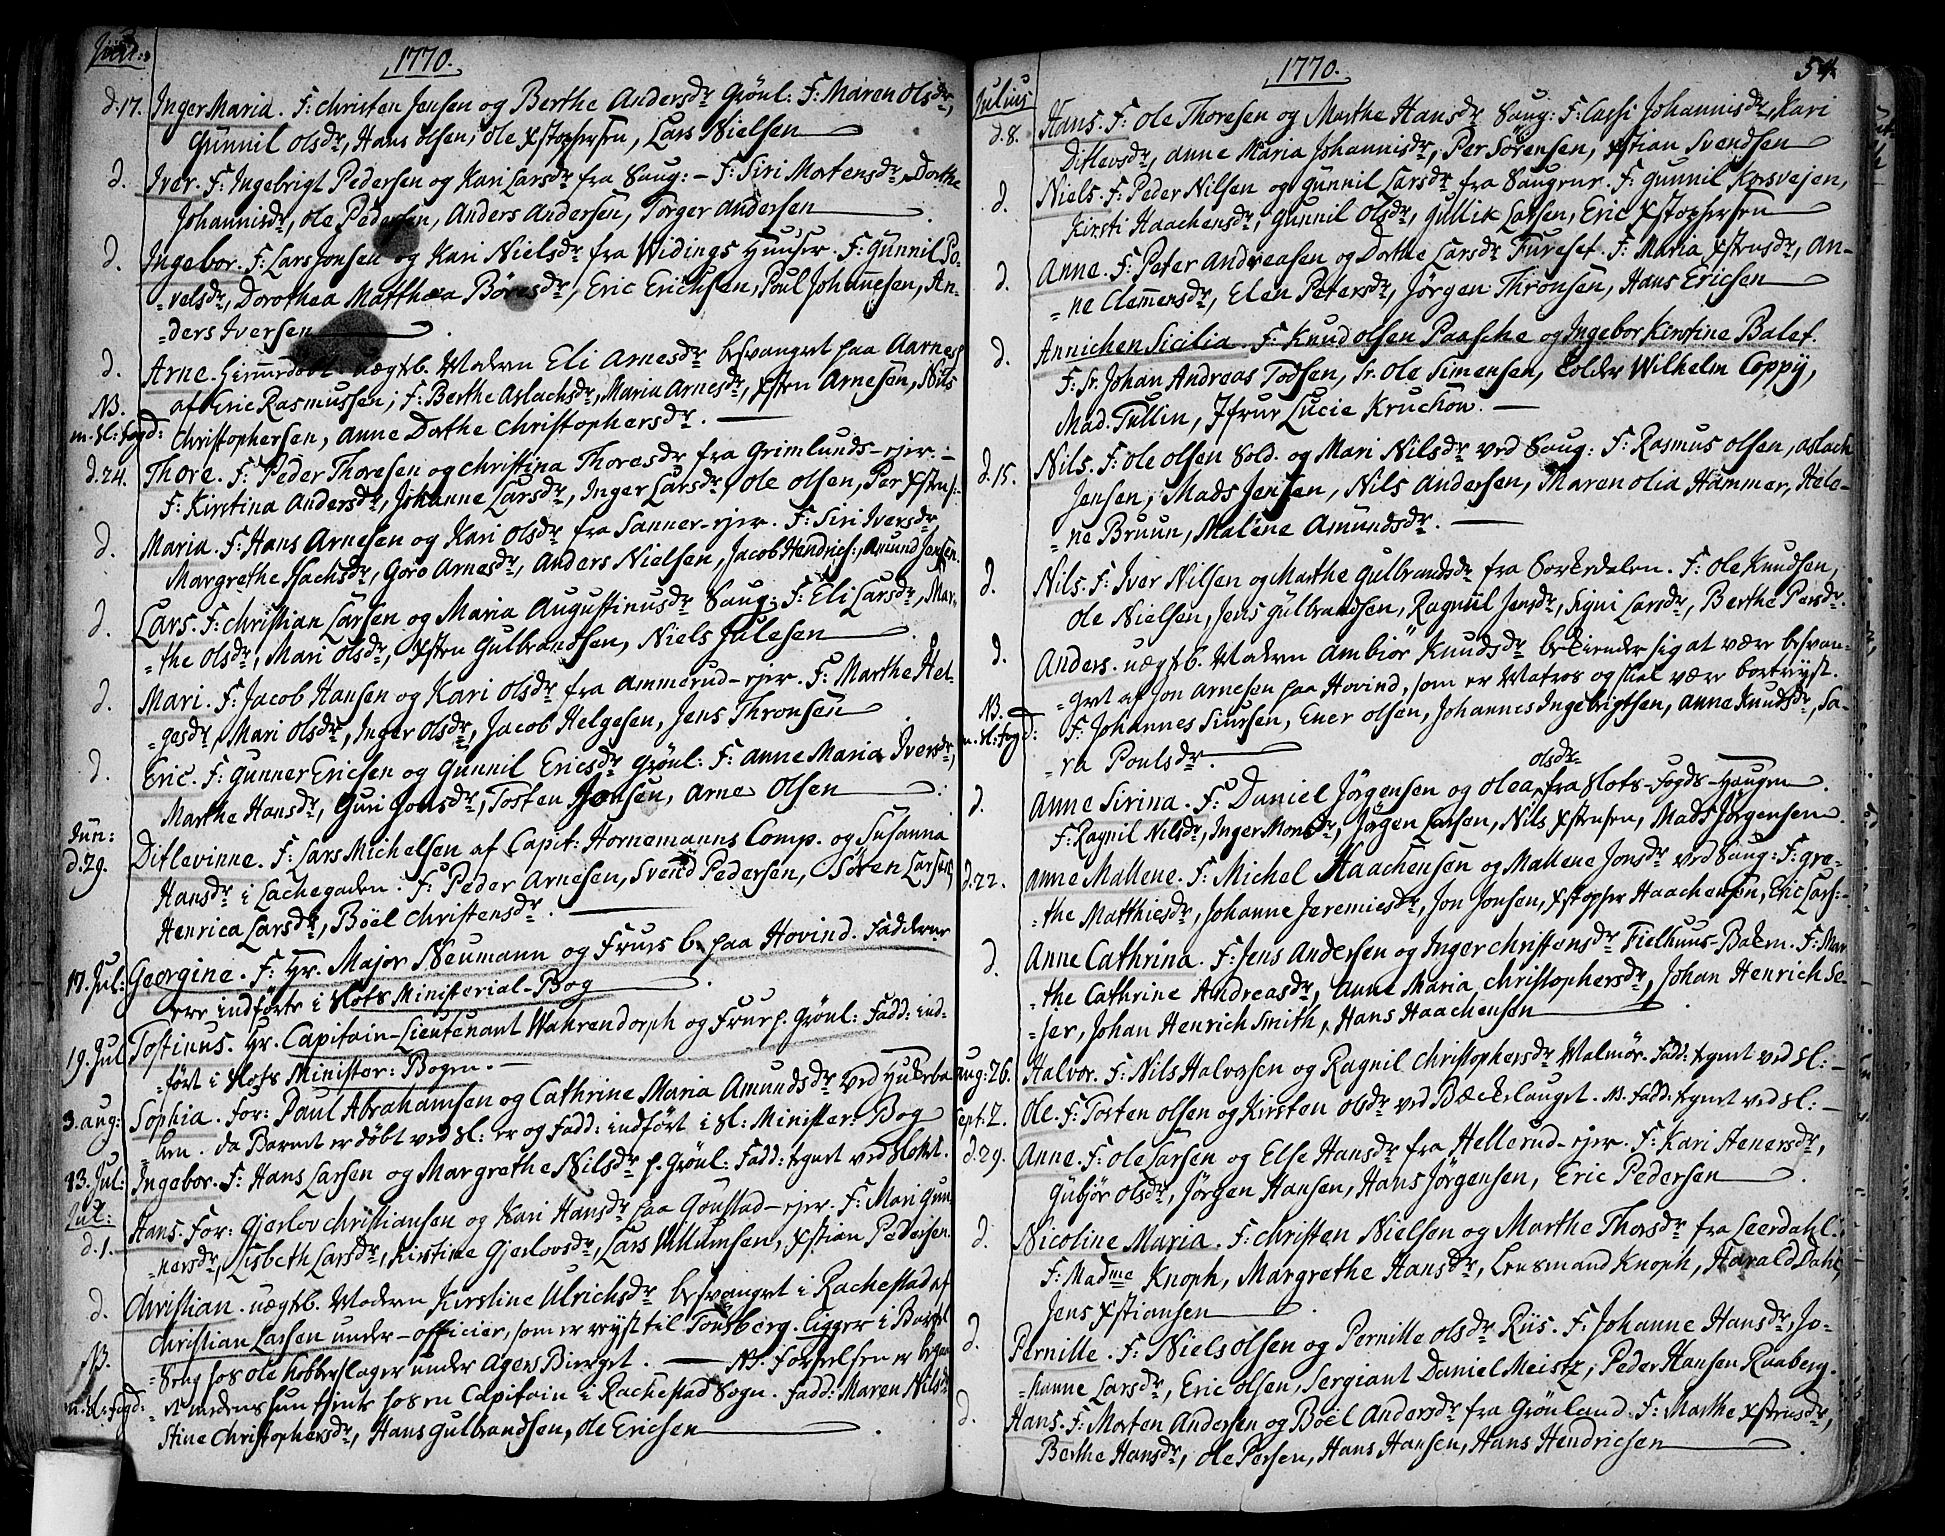 Juni:
1770.
d. 17. Inger Maria. F: Christen Jensen og Berthe Andersdr Grönl: F: Maren Olsdr,
Gunnil Olsdr, Hans Olsen, Ole Xstophersen, Lars Nielsen
d. Iver. F: Ingebrigt Pedersen og Kari Larsdr fra Saug: – F: Siri Mortensdr, Dorthe
Johannisdr, Ole Pedersen, Anders Andersen, Torger Andersen
d. Ingebor. F: Lars Jonsen og Kari Nielsdr fra Widings Huuser. F: Gunnil Po-
=velsdr, Dorothea Matthæa Börresdr, Eric Erichsen, Poul Johannesen, An-
=ders Iversen
d. Arne. uægtb. Modern Eli Arnesdr besvangret paa Aarnes
NB. af Eric Rasmussen; F: Berthe Aslachsdr, Maria Arnesdr, Xsten Arnesen, Nils
m. Sl: Fogd: Christophersen, Anne Dorthe Christophersdr.
d. 24. Thore. F: Peder Thoresen og Christina Thoresdr fra Grimlunds-ejer. –
F: Kirstina Andersdr, Johanne Larsdr, Inger Larsdr, Ole Olsen, Per Xstens:
d. Maria. F: Hans Arnesen og Kari Olsdr fra Sanner-ejer. F: Siri Iversdr,
Margrethe Isachsdr, Goro Arnesdr, Anders Nielsen, Jacob Hendrichs:, Amund Jensen.
d. Lars. F: Christian Larsen og Maria Augustinusdr Saug: F: Eli Larsdr, Mar-
=the Olsdr, Mari Olsdr, Xsten Gulbrandsen, Niels Julesen
d. Mari. F: Jacob Hansen og Kari Olsdr fra Ammerud-ejer. F: Marthe Hel-
=gesdr, Mari Olsdr, Inger Olsdr, Jacob Helgesen, Jens Thronsen
d. Eric. F: Gunner Ericsen og Gunnil Ericsdr Grönl: F: Anne Maria Iversdr,
Marthe Hansdr, Guri Jonsdr, Tosten Jonsen, Arne Olsen
Jun:
d. 29. Ditlevinne. F: Lars Michelsen af Capit: Hornemanns Comp. og Susanna
Hansdr i Lachegaden. F: Peder Arnesen, Svend Pedersen, Sören Larsen,
Henrica Larsdr, Boel Christensdr.
17. Jul: Georgine. F: Hr. Major Neumann og Frue b. paa Hovind. Fadderne
ere indförte i Slots Ministerial-Bog
19. Jul Tostinus. Hr. Capitain-Lieutenant Wahrendorph og Frue p. Grönl: Fadd: ind-
=fört i Slots Minister: Bogen. –
3. aug: Sophia. For: Paul Abrahamsen og Cathrine Maria Amundsdr ved
da Barnet er döbt ved Sl: er og Fadd: indfört i Sl: Minister: Bog
13. Jul: Ingebor. F: Hans Larsen og Margrethe Nilsdr p. Grönl: Fadd: tegnet ved Slottet.
Jul:
d. 1. Hans. For: Gjerlov Christiansen og Kari Hansdr paa Goustad-ejer. F: Mari Gun
=nersdr, Lisbeth Larsdr, Kirstine Gjerlovsdr, Lars Willumsen, Xstian Pedersen.
d. Christian. uægtb. Modern Kirstine Ulrichsdr besvangret i Rachestad af
Christian Larsen under-officier, som er reyst til Tönsberg. ligger i Barsel
NB. =Seng hos Ole Kobberslager under Agers Bierget. — NB. Forseelsen er began
m. Sl: Fogd: =et medens hun tjente hos en Capitain i Rachestad Sogn. Fadd: Maren Nilsdr
Stine Christophersdr, Hans Gulbrandsen, Ole Ericsen
1770.
54.
Julius
d. 8. Hans. F: Ole Thoresen og Marthe Hansdr Saug: F: Cassi Johannisdr, Kari
Ditlevsdr, Anne Maria Johannisdr, Per Sörensen, Xstian Svendsen
d. Niels. F: Peder Nilsen og Gunnil Larsdr fra Saugene. F: Gunnil Korsvejen,
Kirsti Haachensdr, Gunnil Olsdr, Gullik Larsen, Eric Xstophersen
d. Anne. F: Peter Andreasen og Dorthe Larsdr Fureset. F: Maria Xstensdr, An-
=ne Clemmensdr, Elen Petersdr, Jörgen Thronsen, Hans Ericsen
d. Annichen Sicilia. F: Knud Olsen Paaske og Ingebor Kirstine Balef.
F: Sr. Johan Andreas Todsen, Sr. Ole Simensen, Colder Wilhelm Coppy,
Mad. Tullin, Jfrue Lucie Kruchow. –
d. 15. Nils. F: Ole Olsen Sold. og Mari Nilsdr ved Saug: F: Rasmus Olsen, Aslach
Jensen, Mads Jensen, Nils Andersen, Maren Olia Hammer, Hele-
=ne Bruun, Malene Amundsdr. –
d. Nils. F: Iver Nilsen og Marthe Gulbrandsdr fra Sorkedalen. F: Ole Knudsen,
Ole Nielsen, Jens Gulbrandsen, Ragnil Jensdr, Signi Larsdr, Berthe Persdr.
d. Anders. uægtb. Modern Ambiör Knudsdr bekiender sig at være besvan-
=gret af Jon Arnesen paa Hovind, som er Matros og skal være bortreyst.
NB. m. Sl: Fogd: F: Johannes Siursen, Ener Olsen, Johannes Ingebrigtsen, Anne Knudsdr, Sa-
=ra Poulsdr.
d. Anne Sirina. F: Daniel Jörgensen og Olea Olsdr fra Slots-Fogds-Haugen.
F: Ragnil Nilsdr, Inger Monsdr, Jörgen Larsen, Nils Xstensen, Mads Jörgensen.
d. 22. Anne Mallene. F: Michel Haachensen og Mallene Jonsdr ved Saug: F: Gre-
=the Matthiesdr, Johanne Jeremiesdr, Jon Jonsen, Xstopher Haachensen, Eric Lars:
d. Anne Cathrina. F: Jens Andersen og Inger Christensdr Tielhuus-Baken. F: Mar-
=the Cathrine Andreasdr, Anne Maria Christophersdr, Johan Henrich Se-
=jer, Johan Henrich Smith, Hans Haachensen
aug: 26. Halvor. F: Nils Halvorsen og Ragnil Christophersdr Malmör. Fadd: tegnet ved Sl: –
Sept: 2. Ole. F: Tosten Olsen og Kirsten Olsdr ved Bæckelauget. NB. Fadd: tegnet ved Sl: –
d. 29. Anne. F: Ole Larsen og Else Hansdr fra Hellerud-ejer. F: Kari Stenersdr,
Gubjör Olsdr, Jörgen Hansen, Hans Jörgensen, Eric Pedersen
d. Nicoline Maria. F: Christen Nielsen og Marthe Thorsdr fra Leerdahl:
F: Madme Knoph, Margrethe Hansdr, Lensmand Knoph, Harald Dahl,
Jens Xstiansen
d. Pernille. F: Niels Olsen og Pernille Olsdr Riis. F: Johanne Hansdr, Jo-
=hanne Larsdr, Eric Olsen, Sergiant Daniel Meistz, Peder Hansen Raaberg.
d. Hans. F: Morten Andersen og Böel Andersdr fra Grönland. F: Marthe Xstensdr,
Berthe Hansdr, Ole Persen, Hans Hansen, Hans Hendricsen